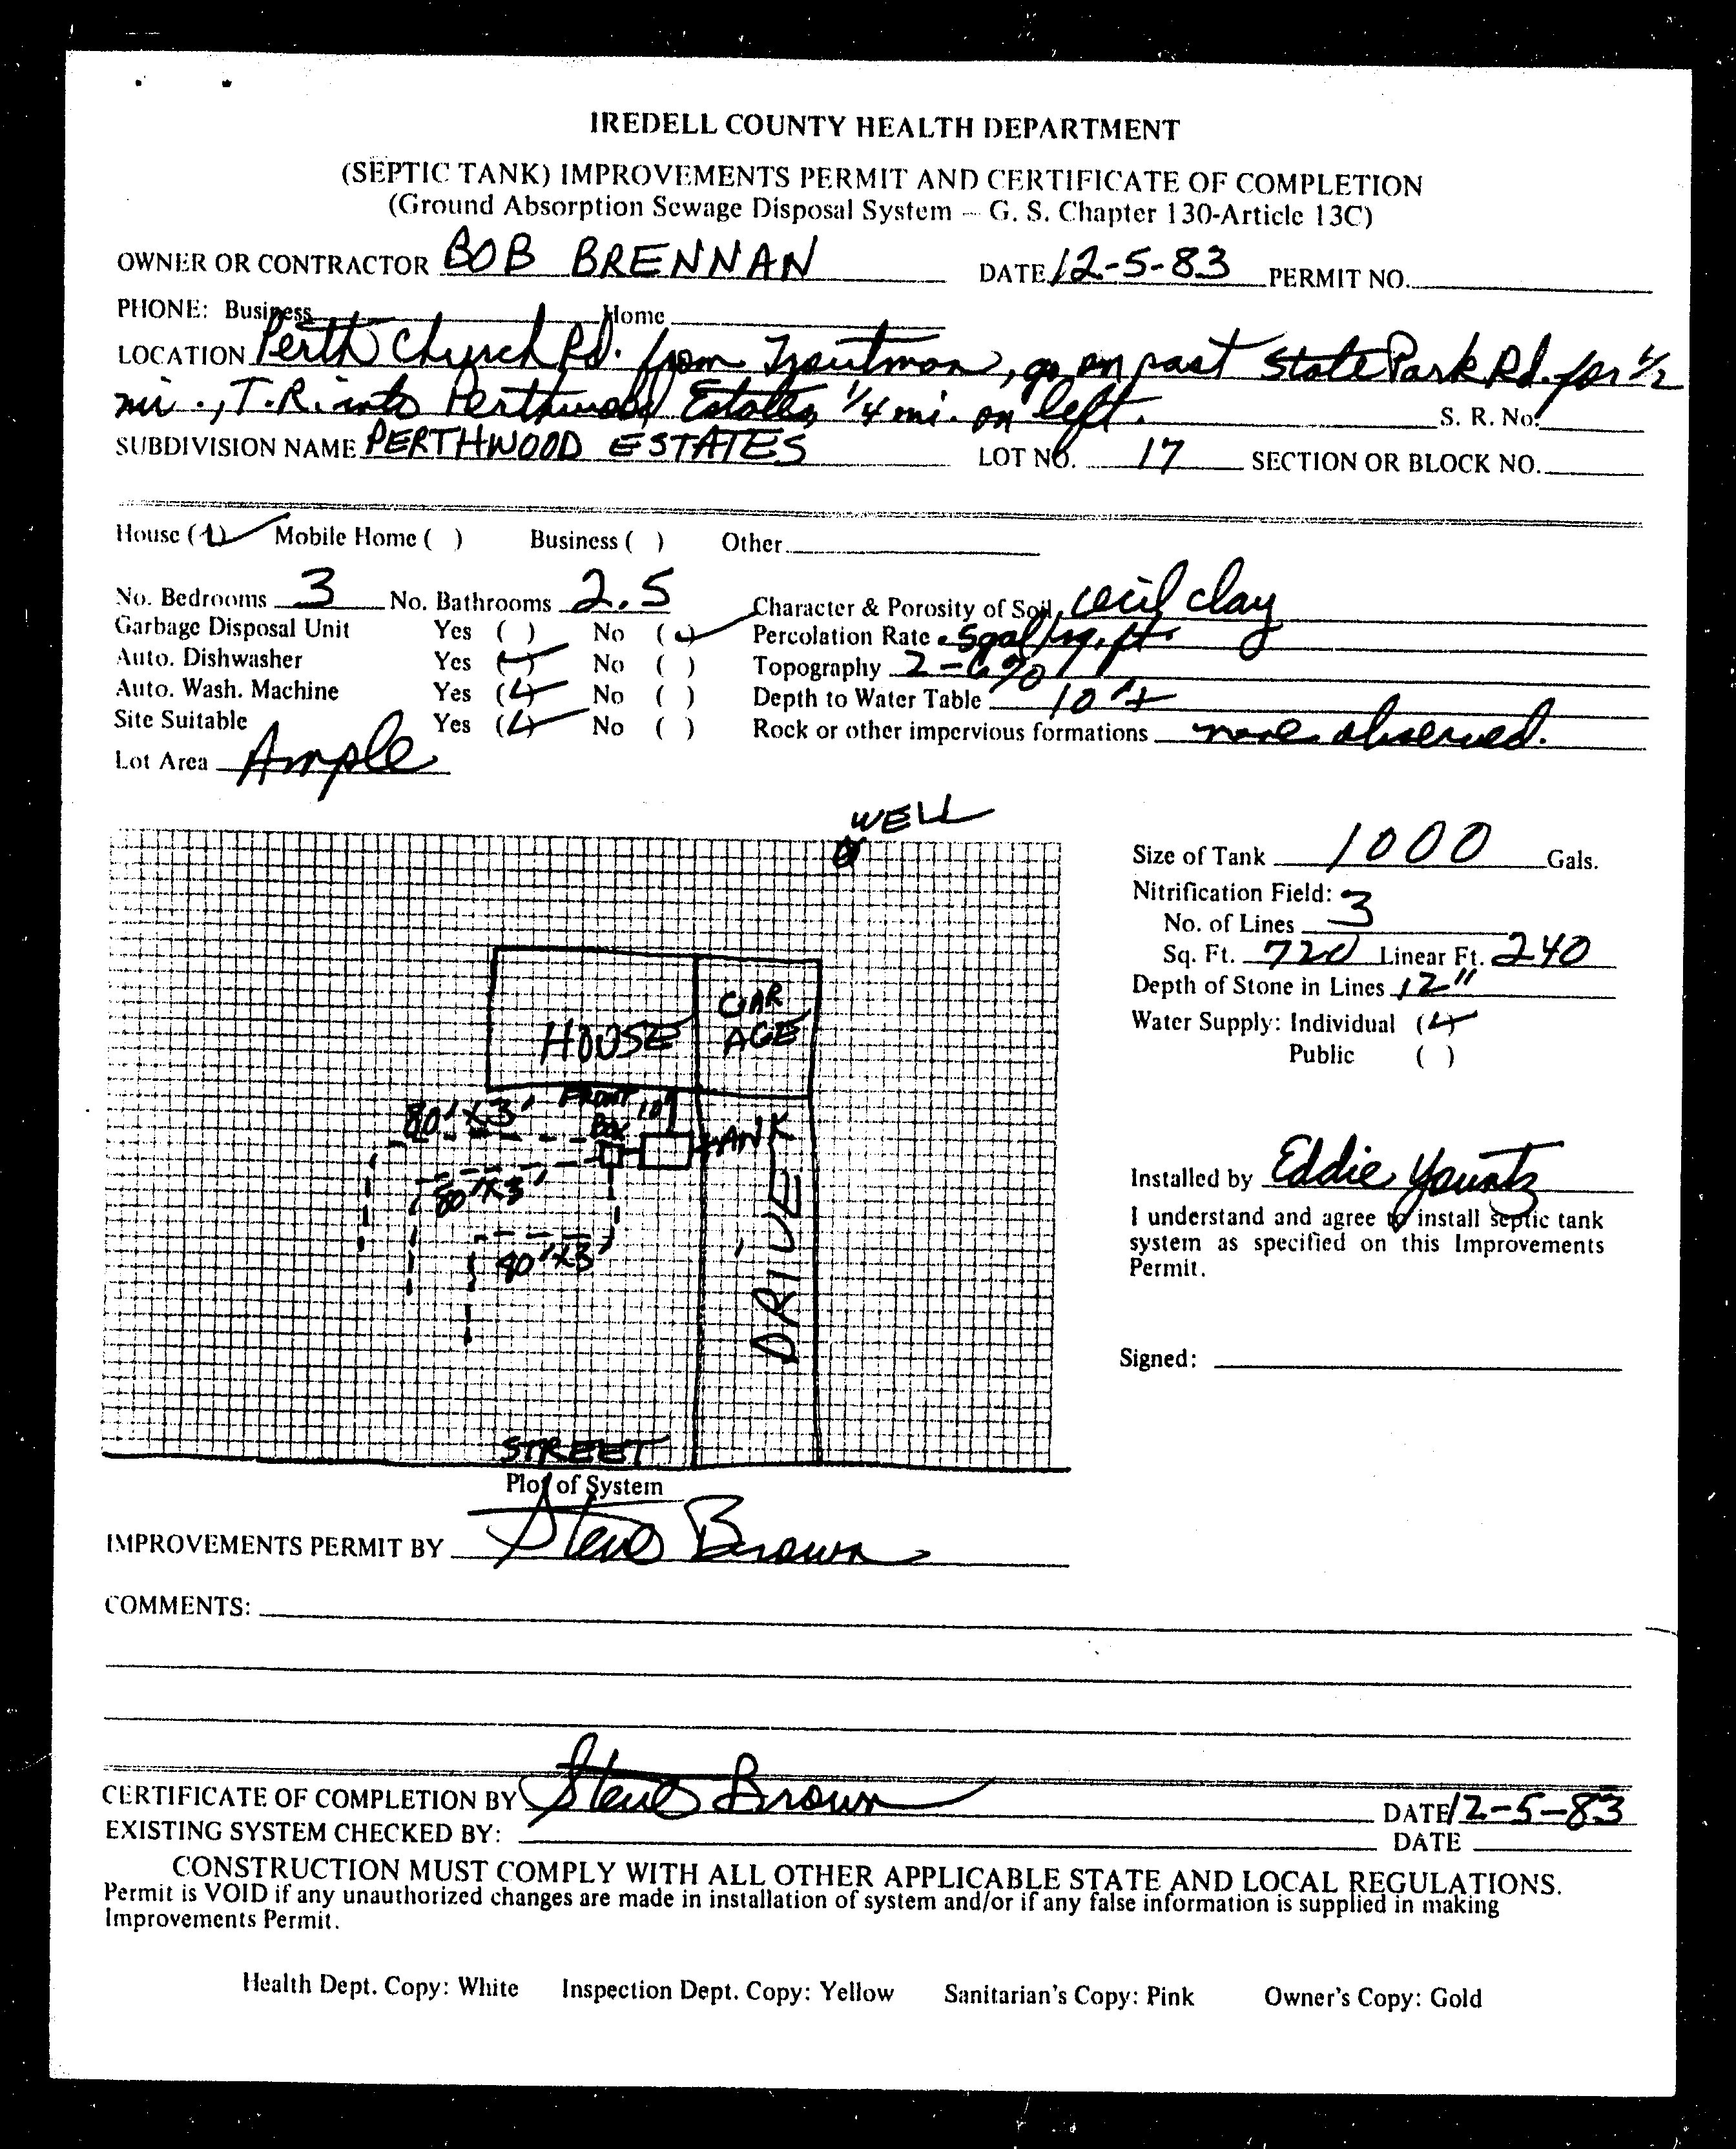 IREDELL COUNTY HEALTH DEPARTMENT
(SEPTIC TANK) IMPROVEMENTS PERMIT AND CERTIFICATE OF COMPLETION
(Ground Absorption Sewage Disposal System — G. S. Chapter 130-Article 13C)
OWNER OR CONTRACTOR BOB BRENNAN DATE 12-5-83 PERMIT NO.
PHONE: Business Home
LOCATION Perth Church Rd. from Troutman, go on past State Park Rd. for 1/2
mi., T.R. into Perthwood Estates, 1/4 mi. on left. S. R. No.
SUBDIVISION NAME PERTHWOOD ESTATES LOT NO. 17 SECTION OR BLOCK NO.
House (✓) Mobile Home ( ) Business ( ) Other
No. Bedrooms 3 No. Bathrooms 2.5 Character & Porosity of Soil cecil clay
Garbage Disposal Unit Yes ( ) No (✓) Percolation Rate .5gal/sq.ft.
Auto. Dishwasher Yes (✓) No ( ) Topography 2-6%
Auto. Wash. Machine Yes (✓) No ( ) Depth to Water Table 10'+
Site Suitable Yes (✓) No ( ) Rock or other impervious formations none observed.
Lot Area Ample
WELL
Size of Tank 1000 Gals.
Nitrification Field:
No. of Lines 3
Sq. Ft. 720 Linear Ft. 240
Depth of Stone in Lines 12"
Water Supply: Individual (✓)
Public ( )
HOUSE
GAR
AGE
FRONT
10'
80'X3'
BOX
TANK
80'X3'
80'X3'
DRIVE
STREET
Installed by Eddie Yountz
I understand and agree to install septic tank
system as specified on this Improvements
Permit.
Signed:
Plot of System
IMPROVEMENTS PERMIT BY Steve Brown
COMMENTS:
CERTIFICATE OF COMPLETION BY Steve Brown DATE 12-5-83
EXISTING SYSTEM CHECKED BY: DATE
CONSTRUCTION MUST COMPLY WITH ALL OTHER APPLICABLE STATE AND LOCAL REGULATIONS.
Permit is VOID if any unauthorized changes are made in installation of system and/or if any false information is supplied in making
Improvements Permit.
Health Dept. Copy: White Inspection Dept. Copy: Yellow Sanitarian's Copy: Pink Owner's Copy: Gold